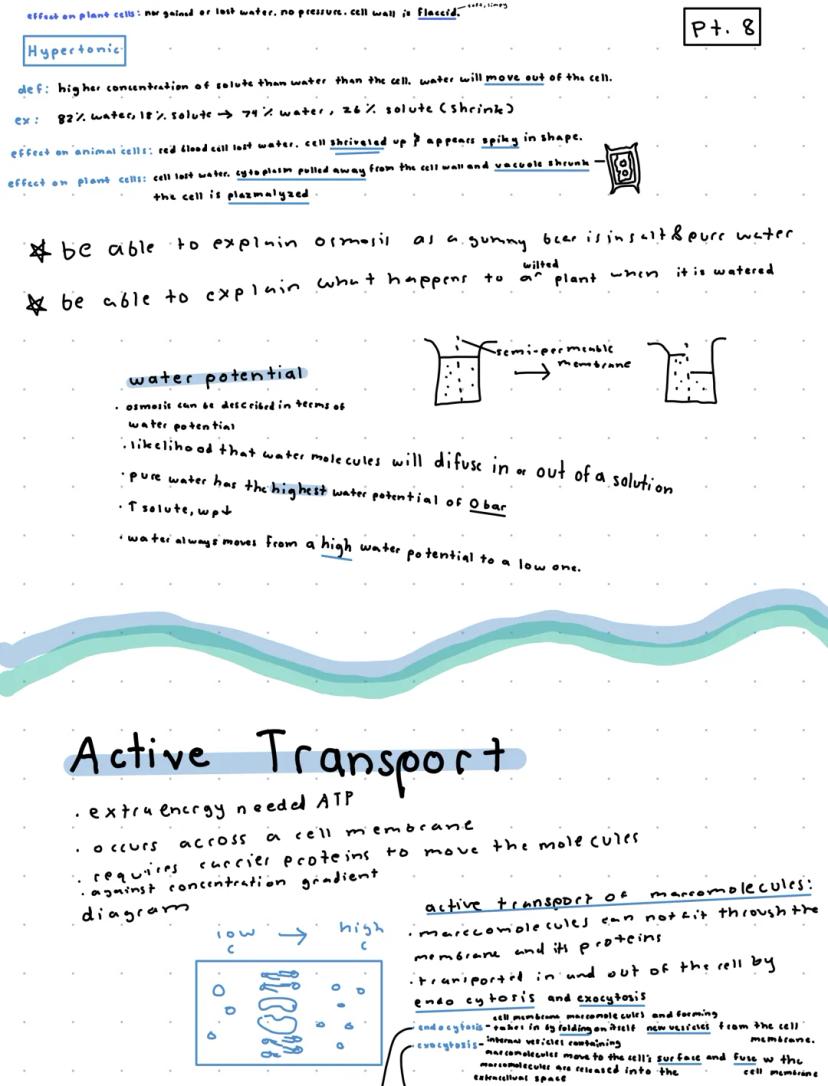 effect on plant cells: nor gained or lost water. no pressure. cell wall is flaccid. soft, limpy
Pt. 8
Hypertonic
def: higher concentration of solute than water than the cell. water will move out of the cell.
ex: 82% water, 18% solute → 74% water, 26% solute (shrink)
effect on animal cells: red blood cell lost water. cell shriveled up & appears spiky in shape.
effect on plant cells: cell lost water. cytoplasm pulled away from the cell wall and vacuole shrunk
the cell is plazmalyzed
be able to explain osmosis as a gummy bear is in salt & pure water
be able to explain what happens to a wilted plant when it is watered
semi-permeable
membrane
water potential
· osmosis can be described in terms of
water potential
· likelihood that water molecules will difuse in or out of a solution
· pure water has the highest water potential of 0 bar
· ↑ solute, wp↓
· water always moves from a high water potential to a low one.
Active Transport
· extra energy needed ATP
· occurs across a cell membrane
· requires carrier proteins to move the molecules
· against concentration gradient
diagram
low → high
c c
active transport of marcomolecules:
· marcomolecules can not fit through the
membrane and its proteins
· transported in and out of the cell by
endo cytosis and exocytosis
cell membrane marcomolecules and forming
endocytosis - takes in by folding on itself new vesicles from the cell
membrane.
exocytosis - internal vesicles containing
marcomolecules move to the cell's surface and fuse w the
marcomolecules are released into the cell membrane
extracellular space